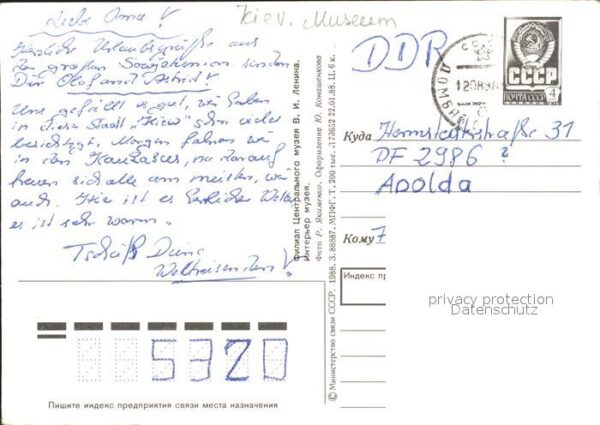 Kiev. Museum
Liebe Oma!
Herzliche Urlaubsgrüße aus
der großen Sowjetunion senden
Dir Olaf und Astrid!
Uns gefällt es gut, wir haben
in dieser Stadt "Kiew" schon viel
besichtigt. Morgen fahren wir
in den Kaukasus, na darauf
freuen sich alle am meisten, wir
auch. Hier ist es herrliches Wetter,
es ist sehr warm.
Tschüß Deine
Weltreisenden!
Филиал Центрального музея В. И. Ленина.
Интерьер музея.
Фото Р. Якименко. Оформление Ю. Конашенкова
© Министерство связи СССР. 1988. З. 86387. МПФГ. Т. 200 тыс. 173652 22.01.88. 11,6 к.
DDR
СССР
ПОЧТА СССР
4
Куда Hermstedtstraße 31
PF 2986 ?
Apolda
Кому
Индекс пр
privacy protection
Datenschutz
5320
Пишите индекс предприятия связи места назначения